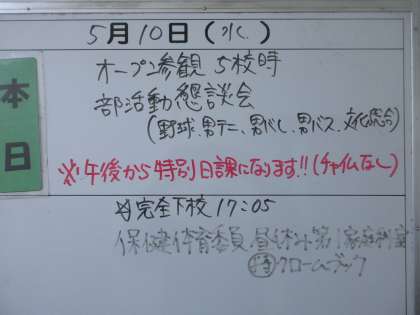 本日
5月10日(水)
オープン参観 5校時
部活動懇談会
(野球、男テニ、男バレ、男バス、文化総合)
※午後から特別日課になります!!(チャイムなし)
☆完全下校 17:05
保健体育委員 昼休み第1家庭科室
持 クロームブック